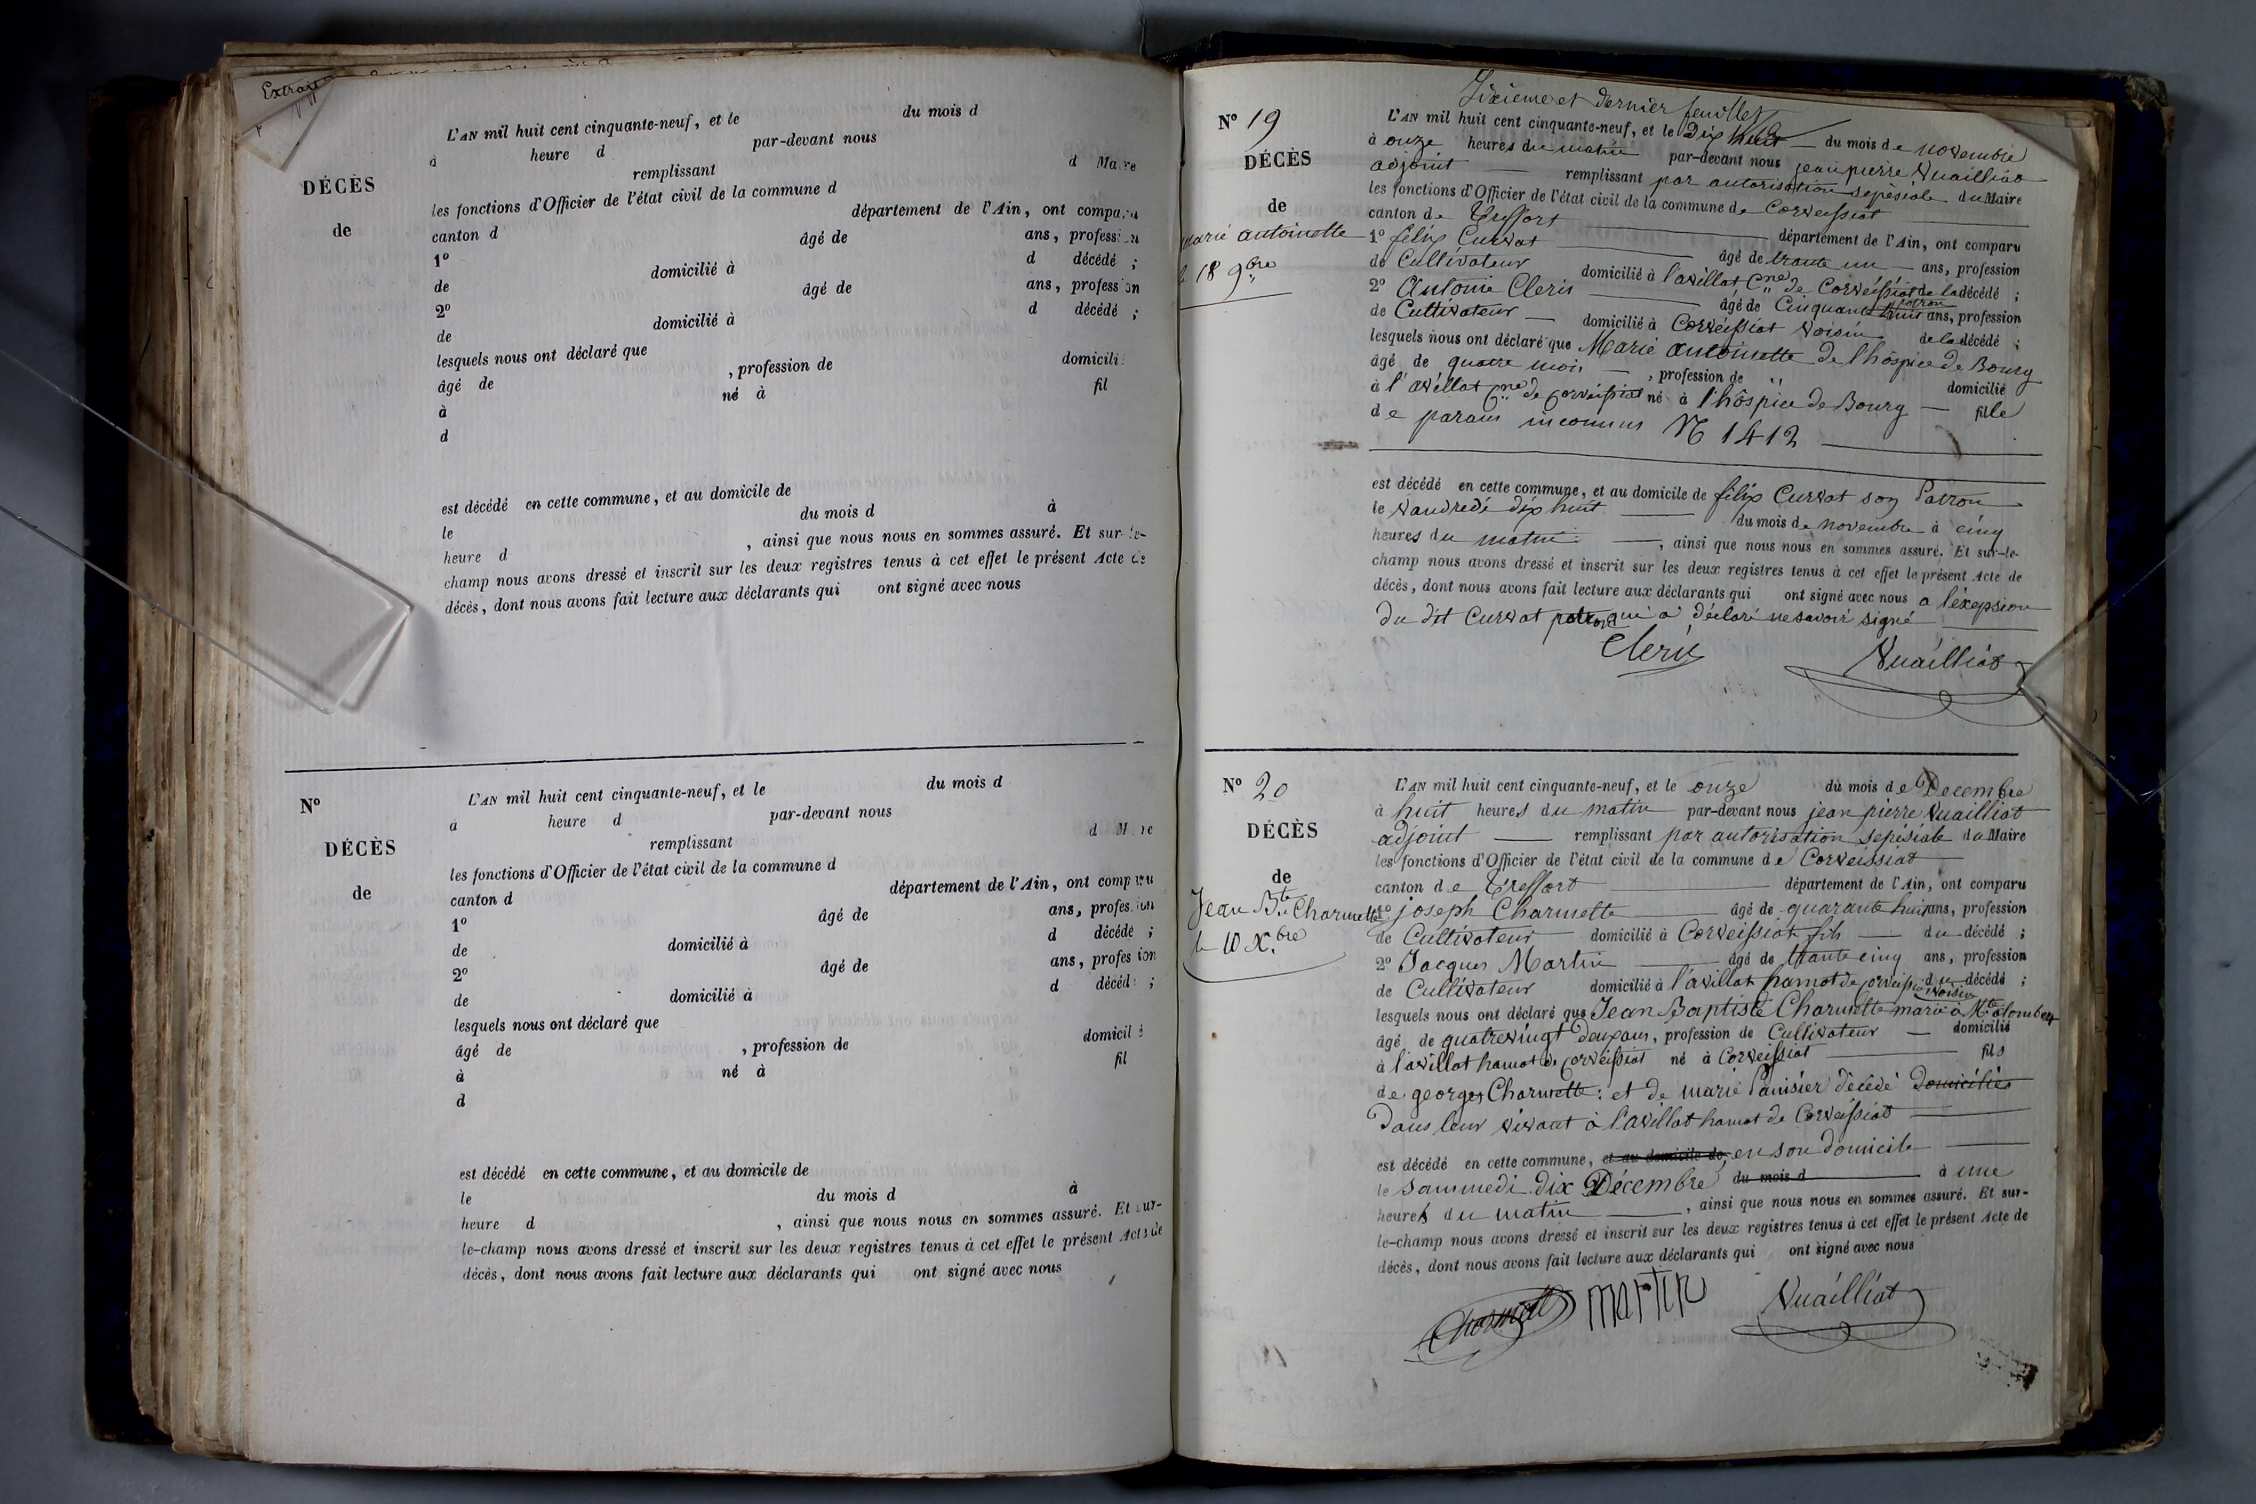 Extrait
L'AN mil huit cent cinquante-neuf, et le du mois d
à heure d par-devant nous
remplissant d Maire
DÉCÈS
les fonctions d'Officier de l'état civil de la commune d
de
canton d département de l'Ain, ont comparu
1º âgé de ans, profession
de domicilié à d décédé ;
2º âgé de ans, profession
de domicilié à d décédé ;
lesquels nous ont déclaré que
âgé de , profession de domicilié
à né à fil
d
est décédé en cette commune, et au domicile de
le du mois d à
heure d , ainsi que nous nous en sommes assuré. Et sur-le-
champ nous avons dressé et inscrit sur les deux registres tenus à cet effet le présent Acte de
décès, dont nous avons fait lecture aux déclarants qui ont signé avec nous
Nº
L'AN mil huit cent cinquante-neuf, et le du mois d
à heure d par-devant nous
DÉCÈS
remplissant d Maire
les fonctions d'Officier de l'état civil de la commune d
de
canton d département de l'Ain, ont comparu
1º âgé de ans, profession
de domicilié à d décédé ;
2º âgé de ans, profession
de domicilié à d décédé ;
lesquels nous ont déclaré que
âgé de , profession de domicilié
à né à fil
d
est décédé en cette commune, et au domicile de
le du mois d à
heure d , ainsi que nous nous en sommes assuré. Et sur-
le-champ nous avons dressé et inscrit sur les deux registres tenus à cet effet le présent Acte de
décès, dont nous avons fait lecture aux déclarants qui ont signé avec nous
Sixieme et dernier feuillet
Nº 19
DÉCÈS
de
marie antoinette
le 18 9.bre
L'AN mil huit cent cinquante-neuf, et le Dix huit du mois de novembre
à onze heures du matin par-devant nous jean pierre Vuailliat
adjoint remplissant par autorisation sepésiale du Maire
les fonctions d'Officier de l'état civil de la commune de Corveissiat
canton de Treffort département de l'Ain, ont comparu
1º félix Curvat âgé de trante un ans, profession
de Cultivateur domicilié à l'avillat Cne de Corveissiat patron de la décédé ;
2º Antoine Cleris âgé de Cinquante trois ans, profession
de Cultivateur domicilié à Corveissiat voisin de la décédé ;
lesquels nous ont déclaré que Marie antoinette de l'hôspice de Bourg
âgé de quatre mois , profession de " domicilié
à l'avillat Cne de Corveissiat né à l'hôspice de Bourg fille
de parans inconnus Nº 1412
est décédé en cette commune, et au domicile de félix Curvat son Patron
le vandredi dix huit du mois de novembre à cinq
heures du matin , ainsi que nous nous en sommes assuré. Et sur-le-
champ nous avons dressé et inscrit sur les deux registres tenus à cet effet le présent Acte de
décès, dont nous avons fait lecture aux déclarants qui ont signé avec nous a l'éxepsion
du dit Curvat patron qui a déclaré ne savoir signé
Cleris Vuailliat
Nº 20
DÉCÈS
de
Jean Bte Charmette
le 10 X.bre
L'AN mil huit cent cinquante-neuf, et le onze du mois de Decembre
à huit heures du matin par-devant nous jean pierre Vuailliat
adjoint remplissant par autorisation sepésiale du Maire
les fonctions d'Officier de l'état civil de la commune de Corveissiat
canton de Treffort département de l'Ain, ont comparu
1º joseph Charmette âgé de quarante huit ans, profession
de Cultivateur domicilié à Corveissiat fils du décédé ;
2º Jacques Martin âgé de trante cinq ans, profession
de Cultivateur domicilié à l'avillat hamot de Corveissiat voisin du décédé ;
lesquels nous ont déclaré que Jean Baptiste Charmette marié à Mte
âgé de quatrevingt deux ans, profession de Cultivateur domicilié
à l'avillat hamot de Corveissiat né à Corveissiat fils
de georges Charmette : et de marie Panisier décédé Domiciliés
dans leur vivant à l'avillat hamot de Corveissiat
est décédé en cette commune, et au domicile de en son domicile
le sammedi dix Décembre du mois d à une
heures du matin , ainsi que nous nous en sommes assuré. Et sur-
le-champ nous avons dressé et inscrit sur les deux registres tenus à cet effet le présent Acte de
décès, dont nous avons fait lecture aux déclarants qui ont signé avec nous
Charmett martin Vuailliat